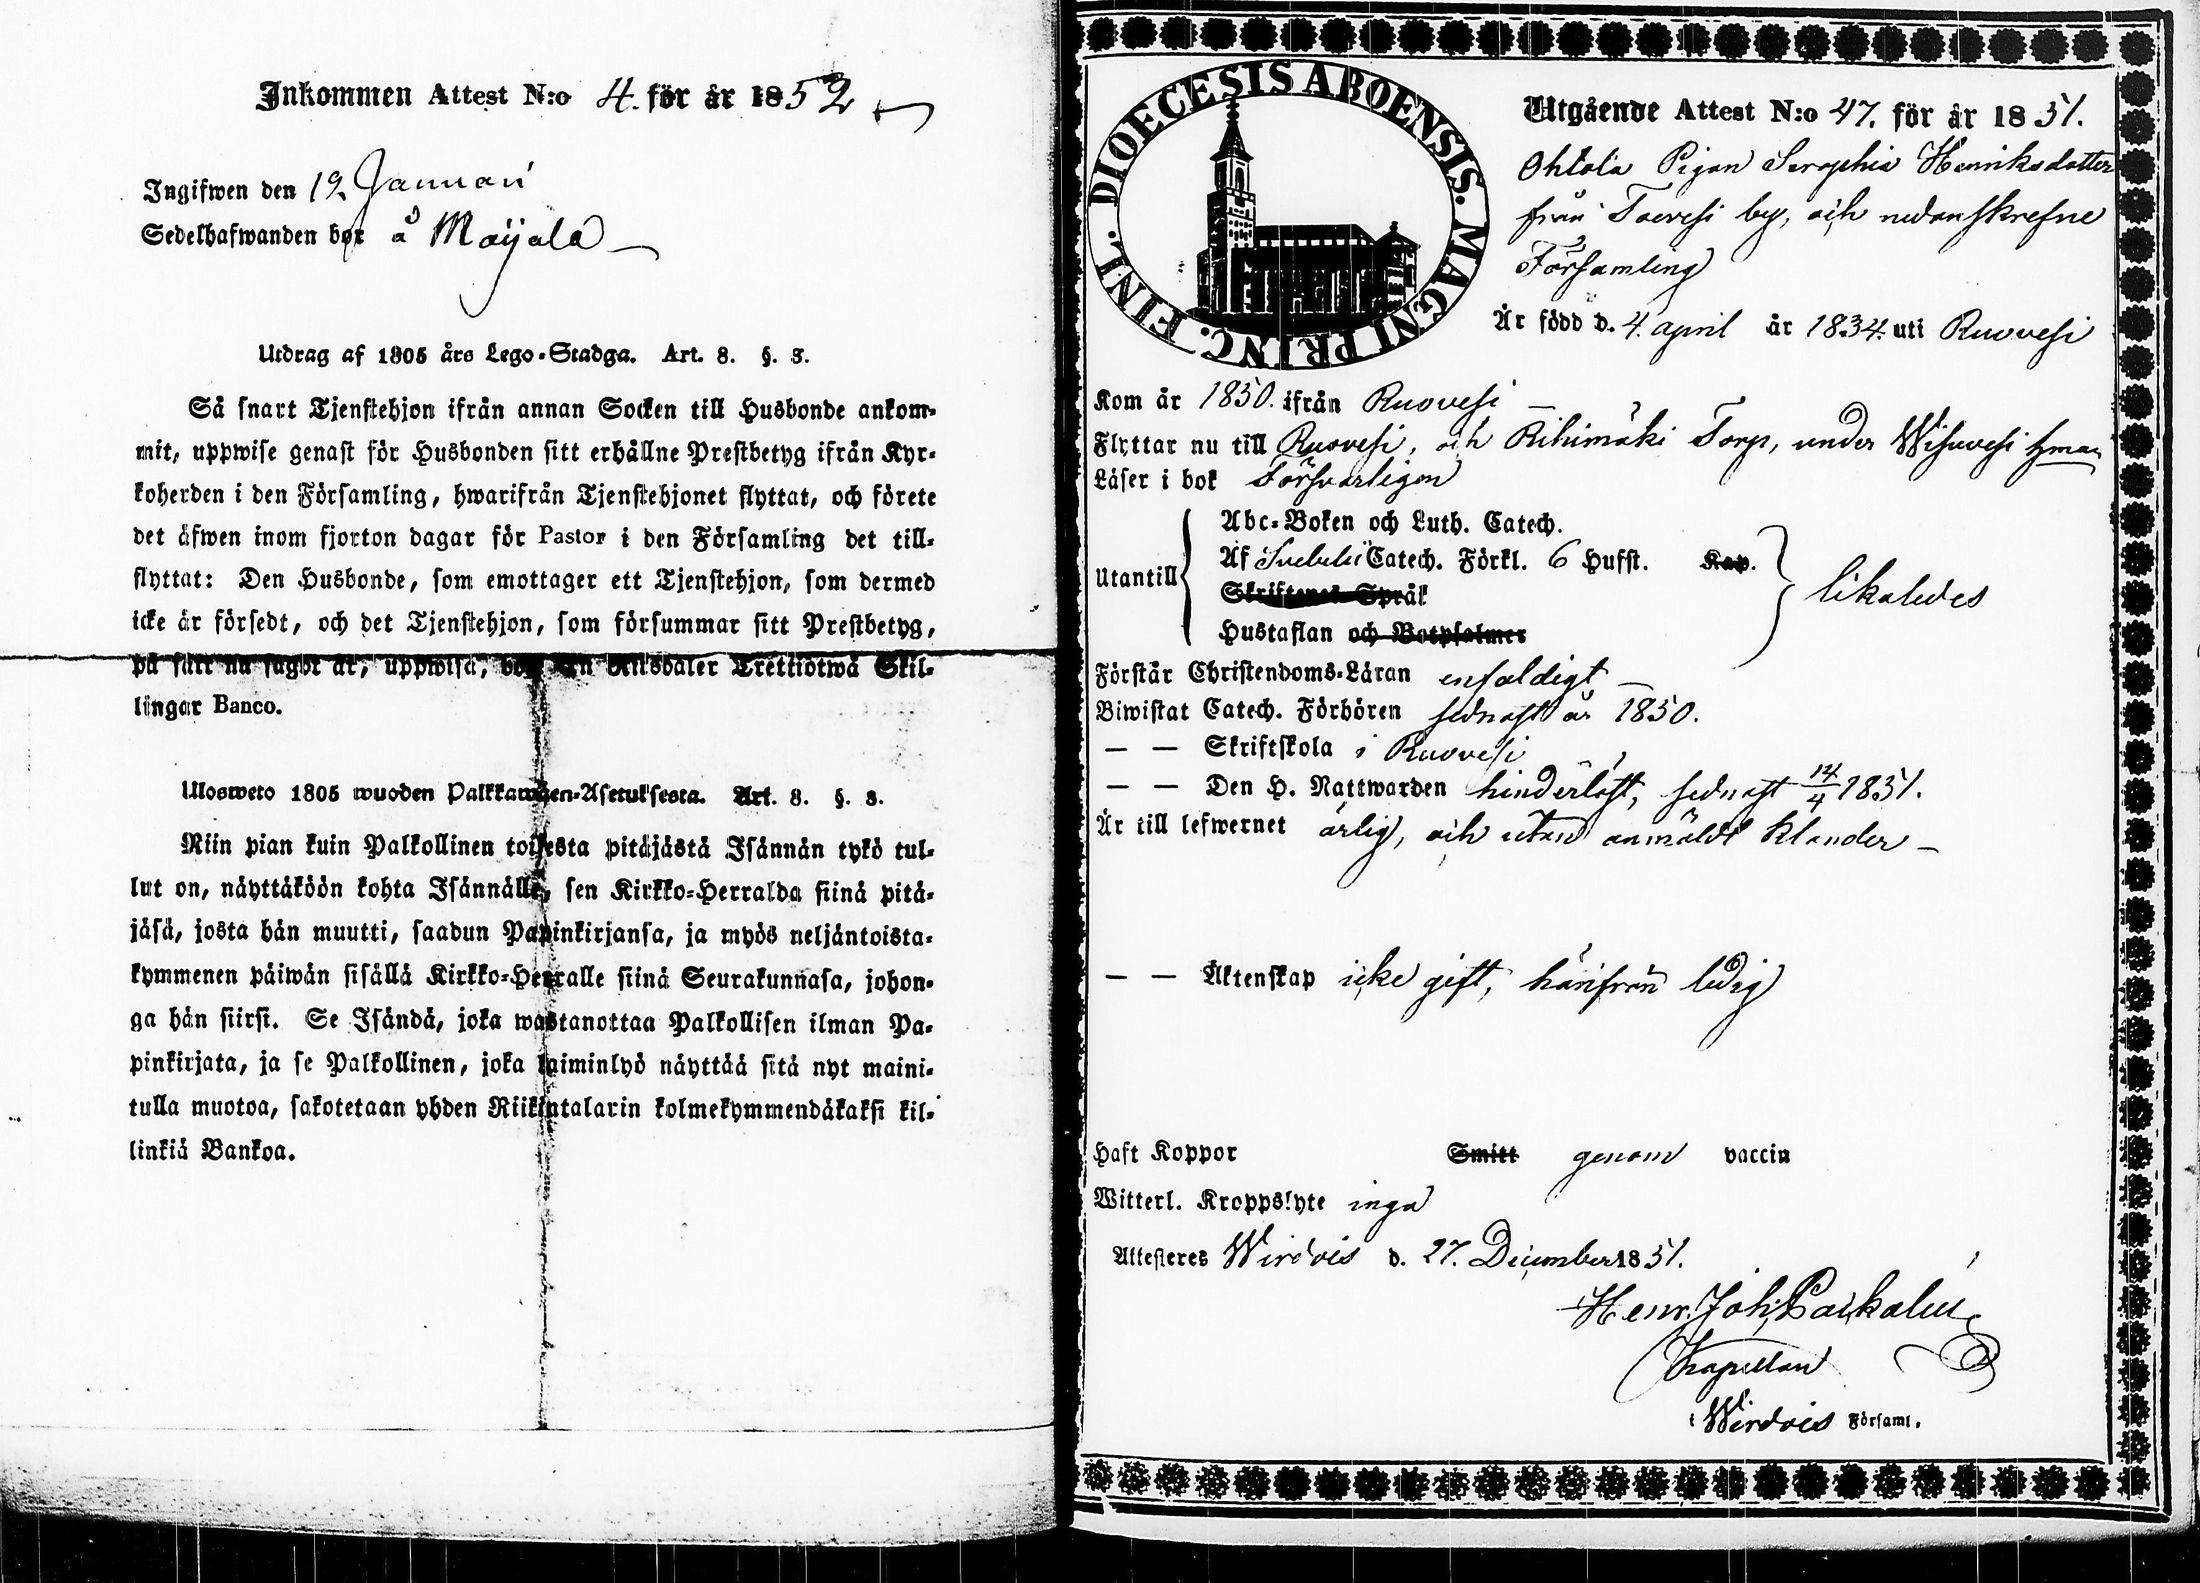 Inkommen Attest N:o 4. för år 1852
Ingifwen den 19 Januari
Sedelhafwanden bor å Maijala
Utdrag af 1805 års Lego-Stadga. Art. 8. §. 3.
Så snart Tjenstehjon ifrån annan Socken till Husbonde ankom-
mit, uppwise genast för Husbonden sitt erhållne Prestbetyg ifrån Kyr-
koherden i den Församling, hwarifrån Tjenstehjonet flyttat, och förete
det äfwen inom fjorton dagar för Pastor i den Församling det till-
flyttat: Den Husbonde, som emottager ett Tjenstehjon, som dermed
icke är försedt, och det Tjenstehjon, som försummar sitt Prestbetyg,
på sätt nu sagdt är, uppwisa, Riksdaler Trettiotwå Skil-
lingar Banco.
Ulosweto 1805 wuoden Palkkawäen-Asetuksesta. Art. 8. §. 3.
Niin pian kuin Palkollinen toisesta pitäjästä Isännän tykö tul-
lut on, näyttäköön kohta Isännälle, sen Kirkko-Herralda siinä pitä-
jäsä, josta hän muutti, saadun Papinkirjansa, ja myös neljäntoista-
kymmenen päiwän sisällä Kirkko-Herralle siinä Seurakunnasa, johon-
ga hän siirsi. Se Isändä, joka wastanottaa Palkollisen ilman Pa-
pinkirjata, ja se Palkollinen, joka laiminlyö näyttää sitä nyt maini-
tulla muotoa, sakotetaan yhden Riikintalarin kolmekymmendäkaksi kil-
linkiä Bankoa.
DIOECESIS ABOENSIS. MAGNI PRINC. FINL.
Utgående Attest N:o 47. för år 1851.
Ohtola Pigan Seraphia Henriksdotter
från Toevesi by, och nedanskrefne
Församling
Är född d. 4. april år 1834. uti Ruovesi
Kom år 1850. ifrån Ruovesi
Flyttar nu till Ruovesi, och Rihimäki Torp, under Wisuvesi hman
Läser i bok Försvarligen
Abc-Boken och Luth. Catech.
Utantill Af Svebelii Catech. Förkl. 6 Hufst. Kap. likaledes
Skriftenes Språk
Hustaflan och Botpsalmer
Förstår Christendoms-Läran enfaldigt
Biwistat Catech. Förhören sednast år 1850.
— — Skriftskola i Ruovesi
— — Den H. Nattwarden hinderlöst, sednast 14/4 1851.
Är till lefwernet ärlig, och utan anmäldt klander
— — Äktenskap icke gift, härifrån ledig
Haft Koppor Smitt genom vaccin
Witterl. Kroppslyte inga
Attesteres Wirdois d. 27. December 1851.
Henr. Joh.
Kapellan
i Wirdois Församl.